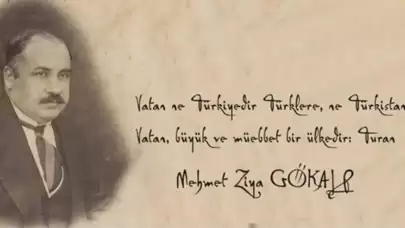 Vatan ne Türkiyedir Türklere, ne Türkistan
Vatan, büyük ve müebbet bir ülkedir: Turan
Mehmet Ziya GÖKALP